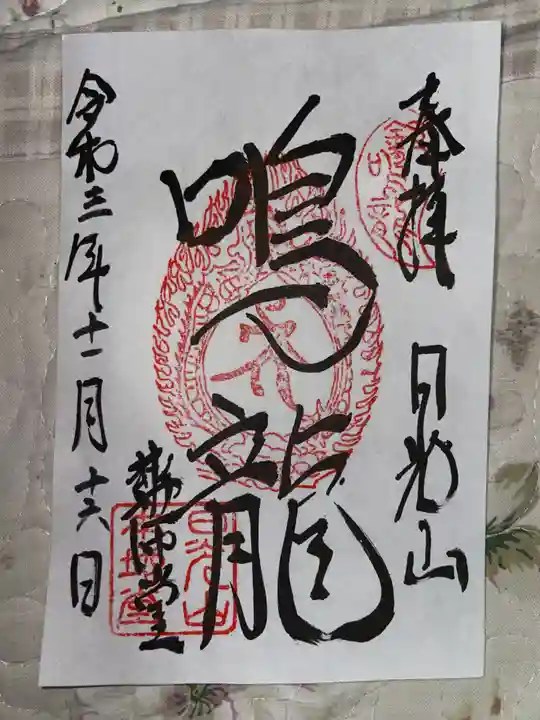 奉拝 日光山
鳴龍
薬師堂
令和三年十一月十六日